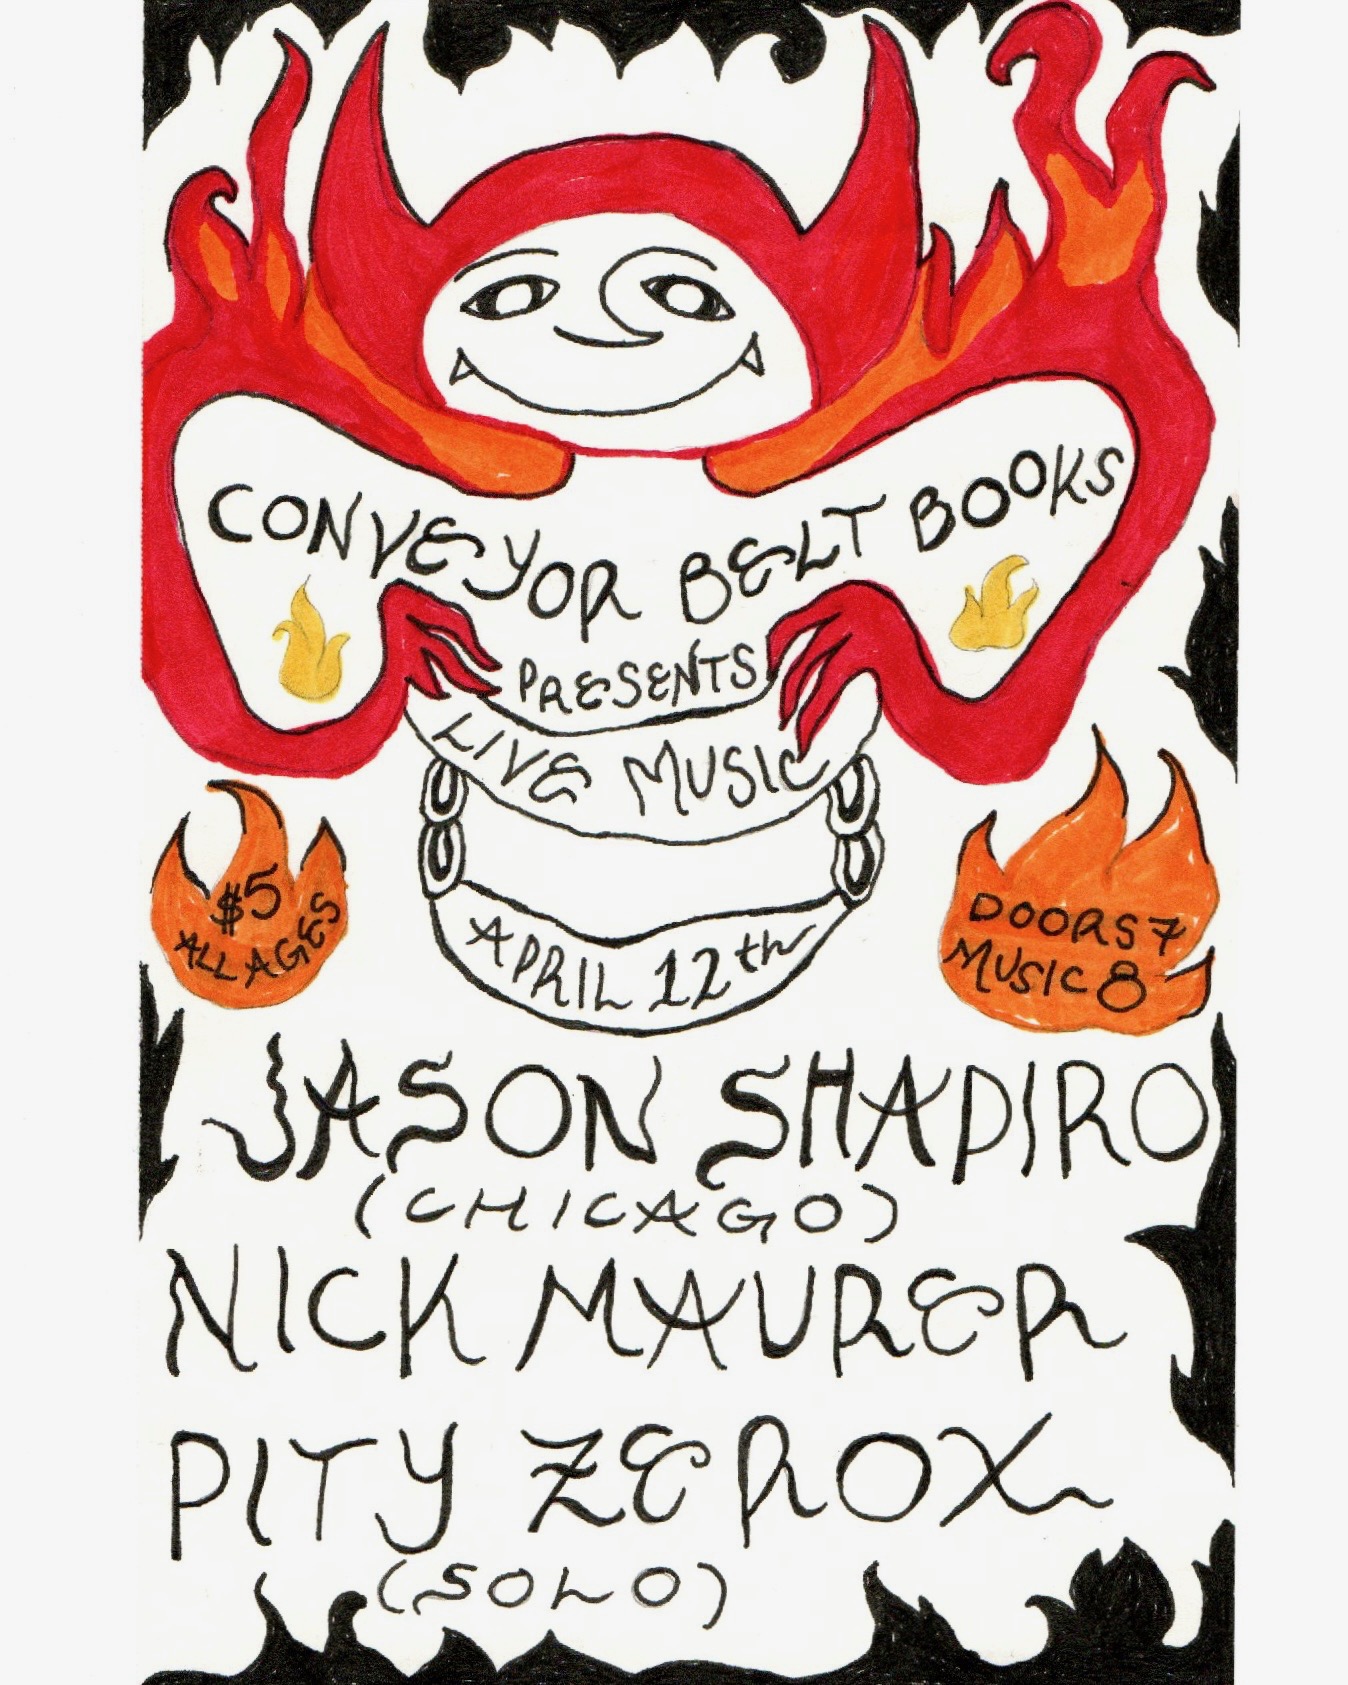 CONVEYOR BELT BOOKS
PRESENTS
LIVE MUSIC
$5
ALL AGES
DOORS 7
MUSIC 8
APRIL 12th
JASON SHAPIRO
(CHICAGO)
NICK MAURER
PITY ZEROX
(SOLO)